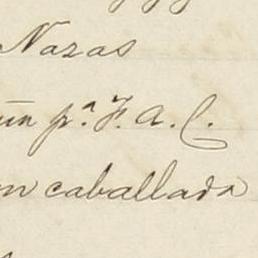 Nazas
un pª F. A. C.
n caballada